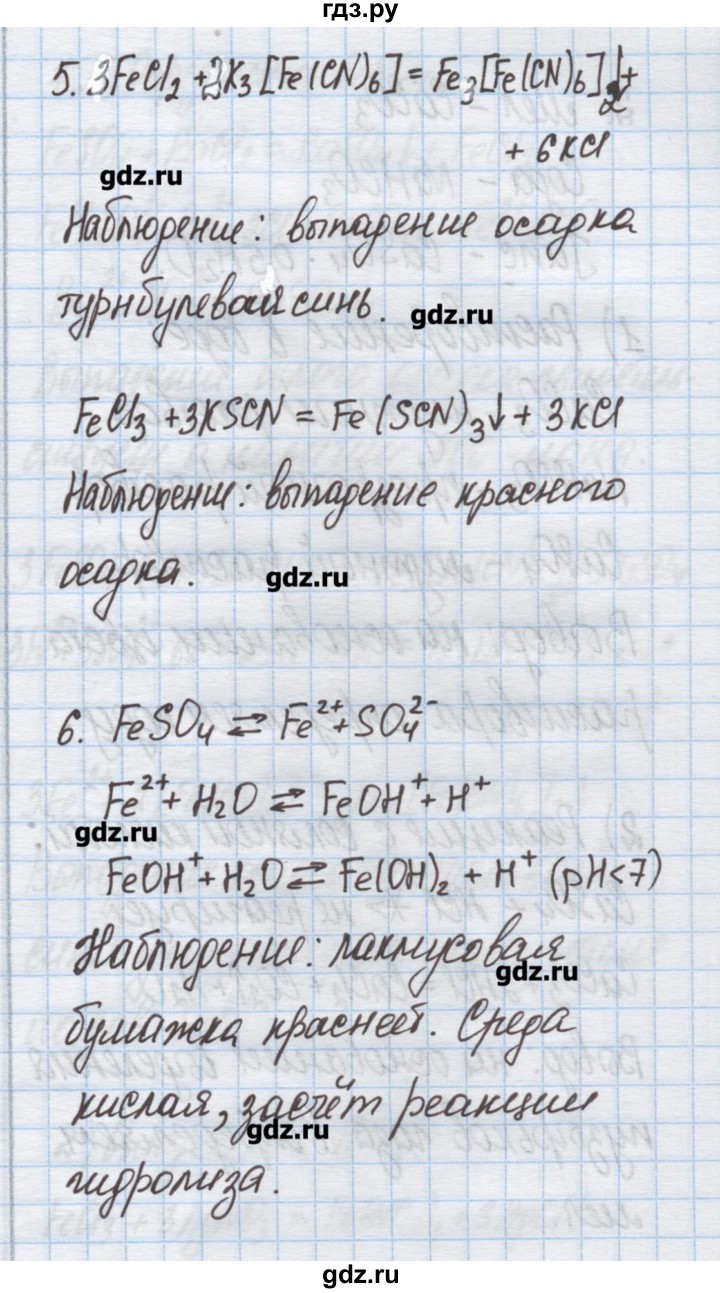 гдз.ру
5. 3FeCl₂ + 2K₃[Fe(CN)₆] = Fe₃[Fe(CN)₆]₂↓+
+ 6KCl
gdz.ru
Наблюдение: выпадение осадка
турнбулевая синь.
gdz.ru
FeCl₃ + 3KSCN = Fe(SCN)₃↓ + 3KCl
Наблюдение: выпадение красного
осадка.
gdz.ru
6. FeSO₄ ⇄ Fe²⁺ + SO₄²⁻
Fe²⁺ + H₂O ⇄ FeOH⁺ + H⁺
gdz.ru
FeOH⁺ + H₂O ⇄ Fe(OH)₂ + H⁺ (pH<7)
Наблюдение: лакмусовая
gdz.ru
бумажка краснеет. Среда
кислая, засчёт реакции
gdz.ru
гидролиза.
gdz.ru